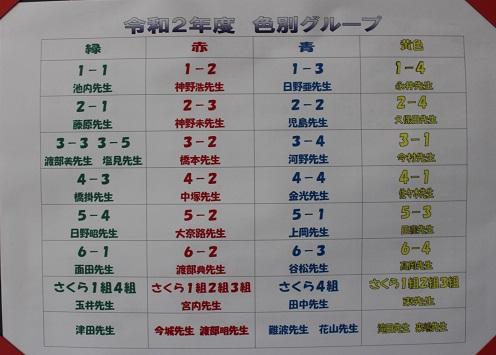 令和2年度 色別グループ
緑 赤 青 黄色
1-1 1-2 1-3 1-4
池内先生 神野浩先生 日野亜先生 永井先生
2-1 2-3 2-2 2-4
藤原先生 神野未先生 児島先生 久保田先生
3-3 3-5 3-2 3-4 3-1
渡部美先生 塩見先生 橋本先生 河野先生 今村先生
4-3 4-2 4-4 4-1
橋掛先生 中塚先生 金光先生 佐々木先生
5-4 5-2 5-1 5-3
日野昭先生 大奈路先生 上岡先生 先生
6-1 6-2 6-3 6-4
面田先生 渡部典先生 谷松先生 高岡先生
さくら1組4組 さくら1組2組3組 さくら4組 さくら1組2組3組
玉井先生 宮内先生 田中先生 東先生
津田先生 今城先生 渡部昭先生 難波先生 花山先生 先生 先生